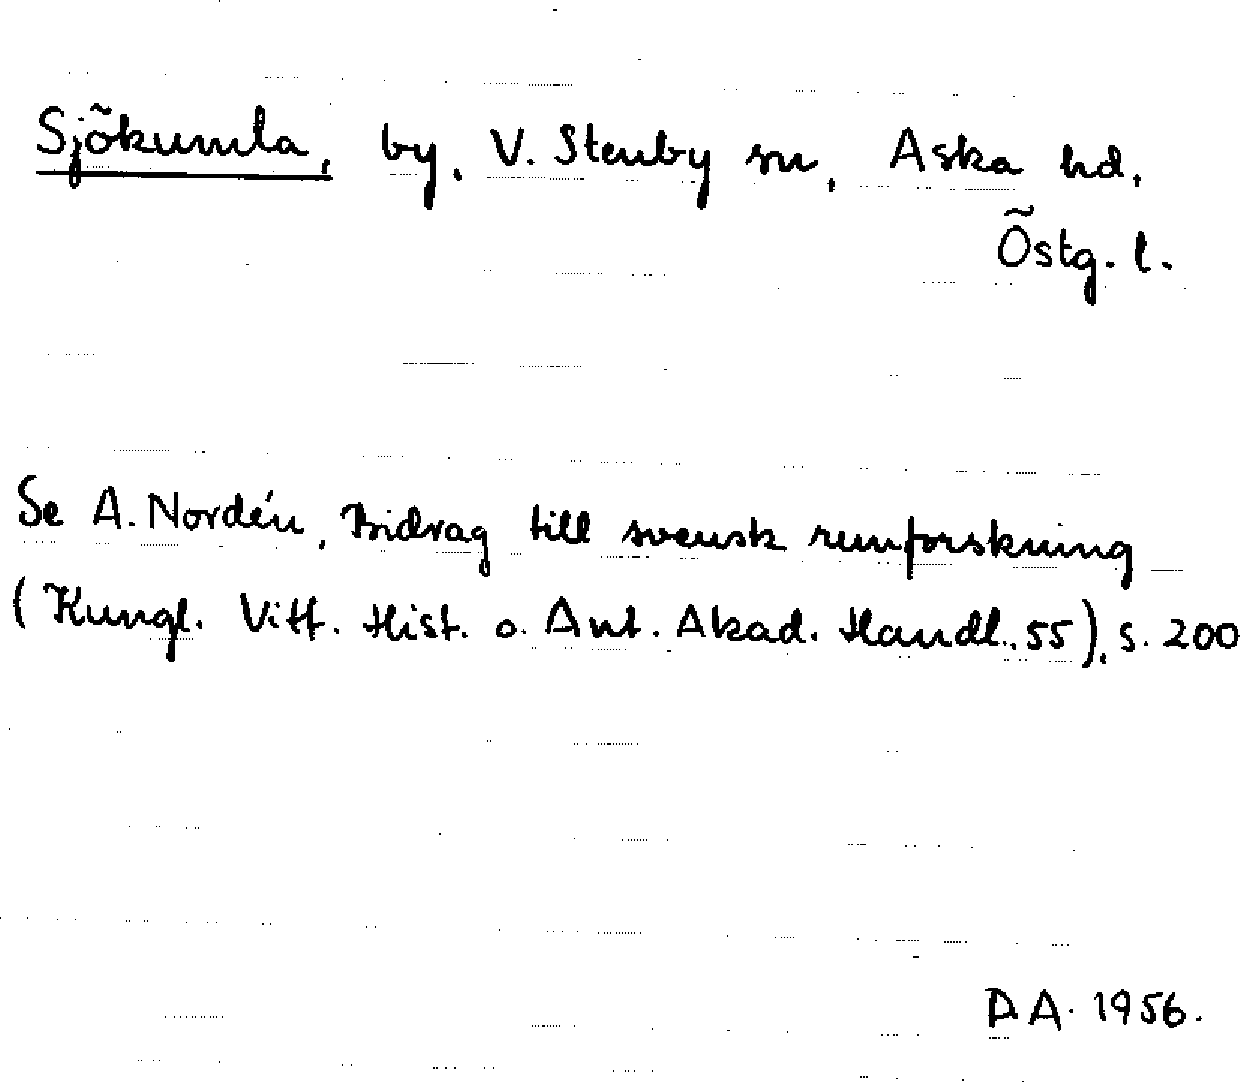 Sjökumla, by, V. Stenby sn, Aska hd,
Östg. l.
Se A. Nordén, Bidrag till svensk runforskning
(Kungl. Vitt. Hist. o. Ant. Akad. Handl., 55), s. 200
D A. 1956.